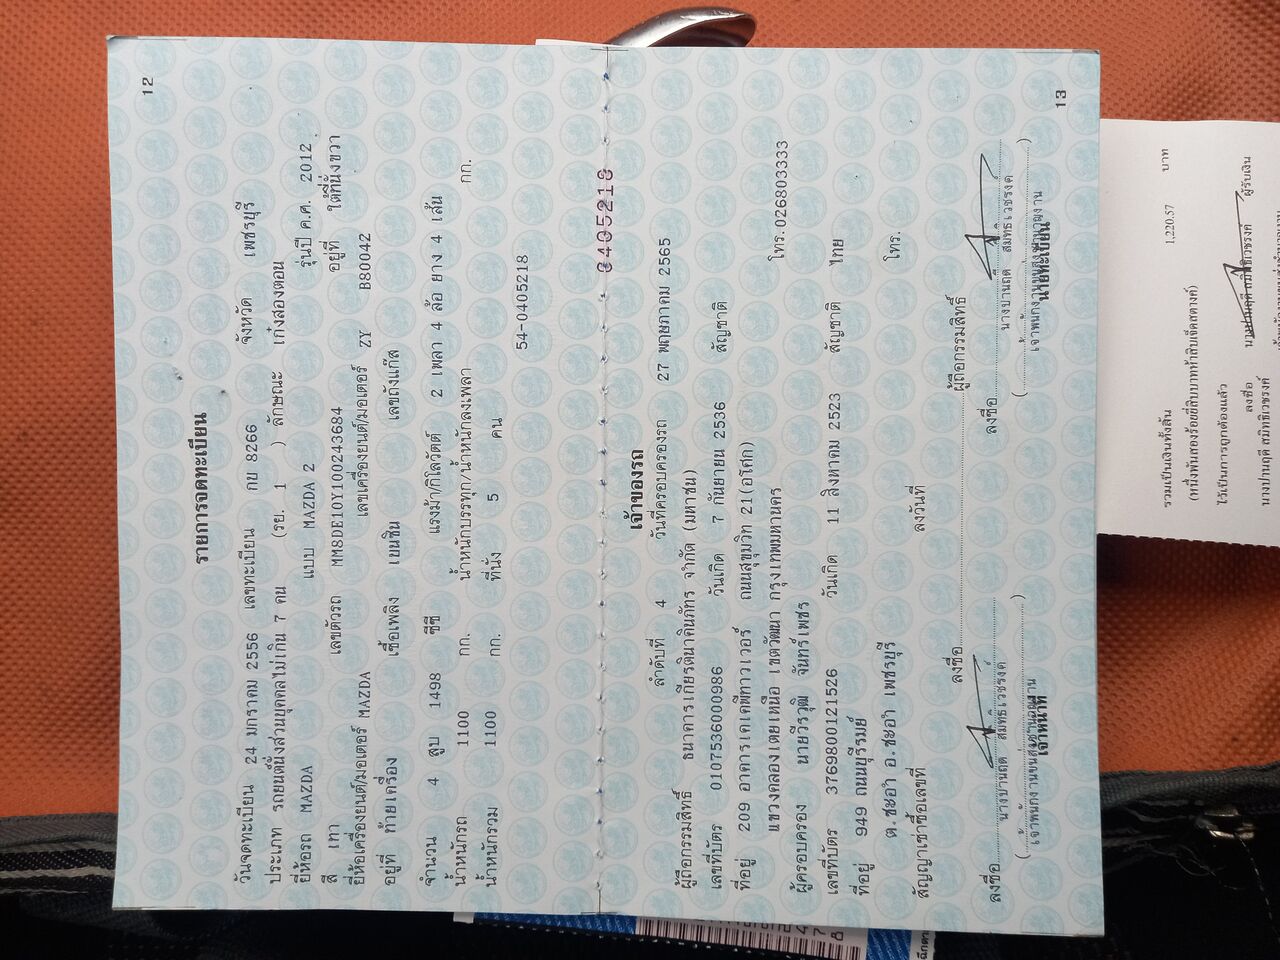 12
รายการจดทะเบียน
วันจดทะเบียน 24 มกราคม 2556 เลขทะเบียน กบ 8266 จังหวัด เพชรบุรี
ประเภท รถยนต์นั่งส่วนบุคคลไม่เกิน 7 คน (รย. 1 ) ลักษณะ เก๋งสองตอน
ยี่ห้อรถ MAZDA แบบ MAZDA 2 รุ่นปี ค.ศ. 2012
สี เทา เลขตัวรถ MM8DE10Y100243684 อยู่ที่ ใต้ที่นั่งขวา
ยี่ห้อเครื่องยนต์/มอเตอร์ MAZDA เลขเครื่องยนต์/มอเตอร์ ZY B80042
อยู่ที่ ท้ายเครื่อง เชื้อเพลิง เบนซิน เลขถังแก๊ส
จำนวน 4 สูบ 1498 ซีซี แรงม้า/กิโลวัตต์ 2 เพลา 4 ล้อ ยาง 4 เส้น
น้ำหนักรถ 1100 กก. น้ำหนักบรรทุก/น้ำหนักลงเพลา กก.
น้ำหนักรวม 1100 กก. ที่นั่ง 5 คน
54-0405218
0405218
เจ้าของรถ
ลำดับที่ 4 วันที่ครอบครองรถ 27 พฤษภาคม 2565
ผู้ถือกรรมสิทธิ์ ธนาคารเกียรตินาคินภัทร จำกัด (มหาชน)
เลขที่บัตร 0107536000986 วันเกิด 7 กันยายน 2536 สัญชาติ
ที่อยู่ 209 อาคารเคเคพีทาวเวอร์ ถนนสุขุมวิท 21(อโศก)
แขวงคลองเตยเหนือ เขตวัฒนา กรุงเทพมหานคร โทร. 026803333
ผู้ครอบครอง นายวีรวุฒิ จันทร์เพชร
เลขที่บัตร 3769800121526 วันเกิด 11 สิงหาคม 2523 สัญชาติ ไทย
ที่อยู่ 949 ถนนบุรีรมย์
ต.ชะอำ อ.ชะอำ เพชรบุรี โทร.
สัญญาเช่าซื้อเลขที่ ลงวันที่
ลงชื่อ ผู้ถือกรรมสิทธิ์
ลงชื่อ ลงชื่อ
เจ้าหน้าที่ นายทะเบียน
13
รวมเป็นเงินทั้งสิ้น 1,220.57 บาท
(หนึ่งพันสองร้อยยี่สิบบาทห้าสิบเจ็ดสตางค์)
ไว้เป็นการถูกต้องแล้ว
ลงชื่อ ผู้รับเงิน